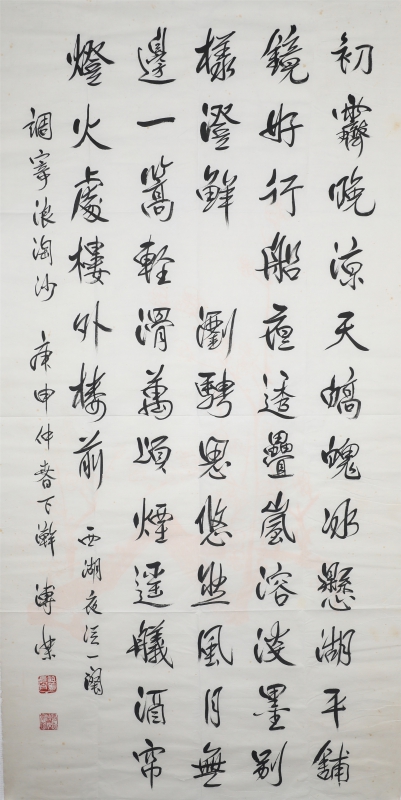 初霽晚涼天皜魄冰懸湖平鋪
鏡好行船透疊嵐溶淡墨別
樣澄鮮 瀏騁思悠然風月無
邊一篙輕滑萬頃煙遥艤酒帘
燈火處樓外樓前 西湖夜泛一闋
調寄浪淘沙 庚申仲春下澣 溥傑